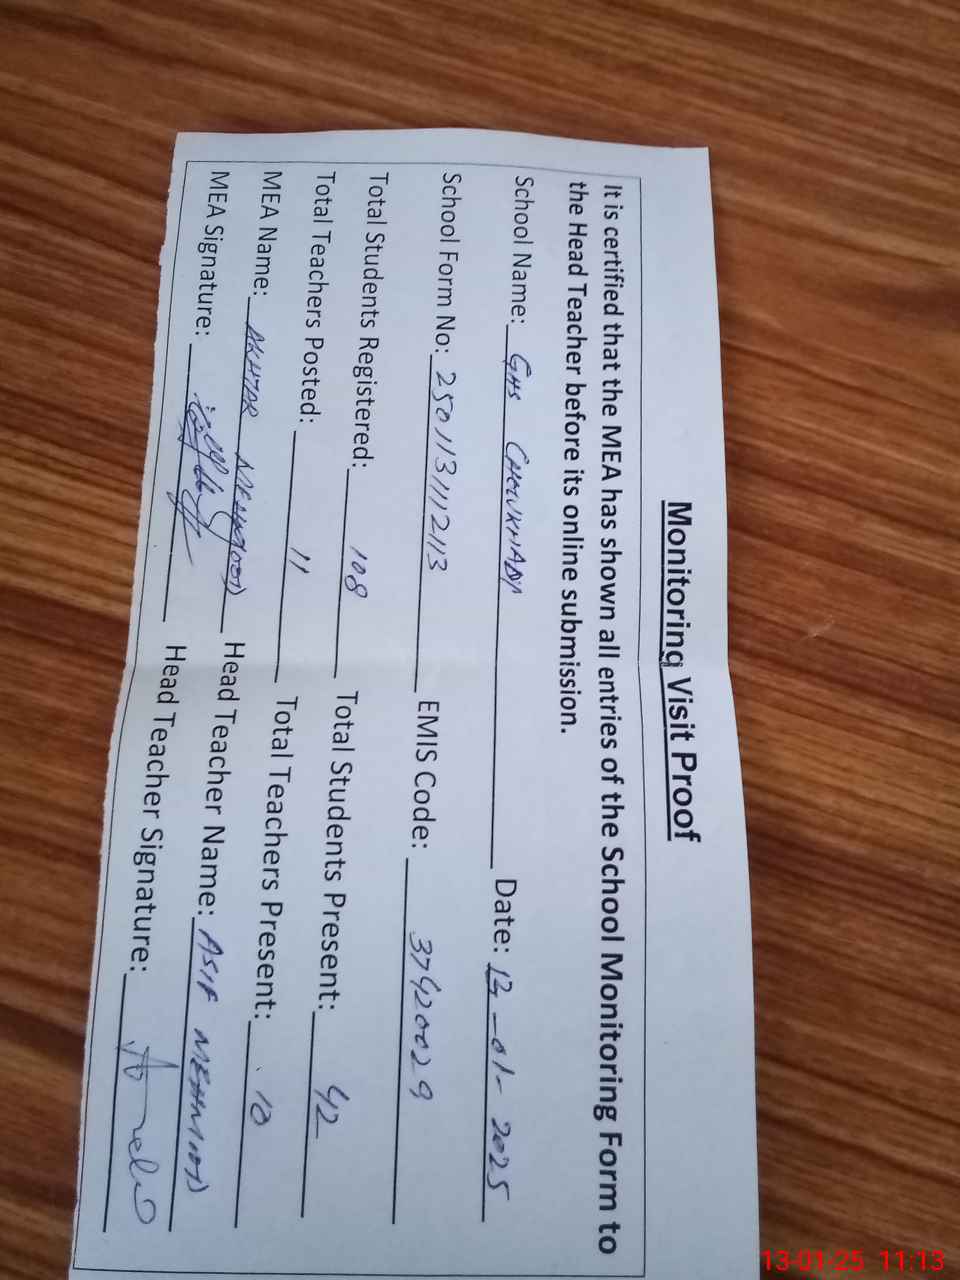 Monitoring Visit Proof
It is certified that the MEA has shown all entries of the School Monitoring Form to
the Head Teacher before its online submission.
School Name: GHS CHOWKHADI Date: 13-01-2025
School Form No: 25011311121​13 EMIS Code: 37420029
Total Students Registered: 108 Total Students Present: 42
Total Teachers Posted: 11 Total Teachers Present: 10
MEA Name: AKHTAR MEHMOOD Head Teacher Name: ASIF MEHMOOD
MEA Signature: Head Teacher Signature:
13-01-25 11:13